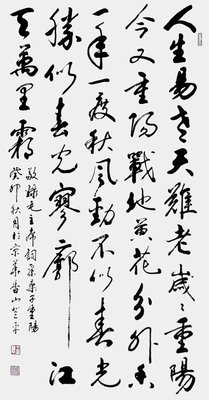 人生易老天難老歲〻重陽
今又重陽戰地黃花分外香
一年一度秋風勁不似春光
勝似春光寥廓江
天萬里霜
敬錄毛主席詞采桑子重陽
癸卯秋月於京華香山